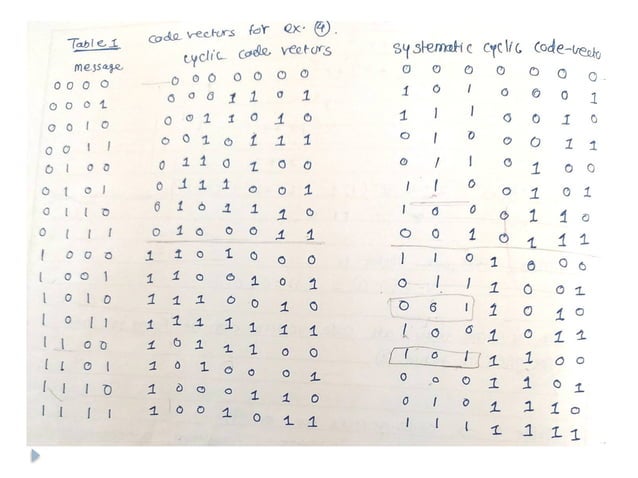 Table I code vectors for ex. 4.
message cyclic code vectors systematic cyclic code-vecto
0 0 0 0 0 0 0 0 0 0 0 0 0 0 0 0 0 0
0 0 0 1 0 0 0 1 1 0 1 1 0 1 0 0 0 1
0 0 1 0 0 0 1 1 0 1 0 1 1 1 0 0 1 0
0 0 1 1 0 0 1 0 1 1 1 0 1 0 0 0 1 1
0 1 0 0 0 1 1 0 1 0 0 0 1 1 0 1 0 0
0 1 0 1 0 1 1 1 0 0 1 1 1 0 0 1 0 1
0 1 1 0 0 1 0 1 1 1 0 1 0 0 0 1 1 0
0 1 1 1 0 1 0 0 0 1 1 0 0 1 0 1 1 1
1 0 0 0 1 1 0 1 0 0 0 1 1 0 1 0 0 0
1 0 0 1 1 1 0 0 1 0 1 0 1 1 1 0 0 1
1 0 1 0 1 1 1 0 0 1 0 0 0 1 1 0 1 0
1 0 1 1 1 1 1 1 1 1 1 1 0 0 1 0 1 1
1 1 0 0 1 0 1 1 1 0 0 1 0 1 1 1 0 0
1 1 0 1 1 0 1 0 0 0 1 0 0 0 1 1 0 1
1 1 1 0 1 0 0 0 1 1 0 0 1 0 1 1 1 0
1 1 1 1 1 0 0 1 0 1 1 1 1 1 1 1 1 1